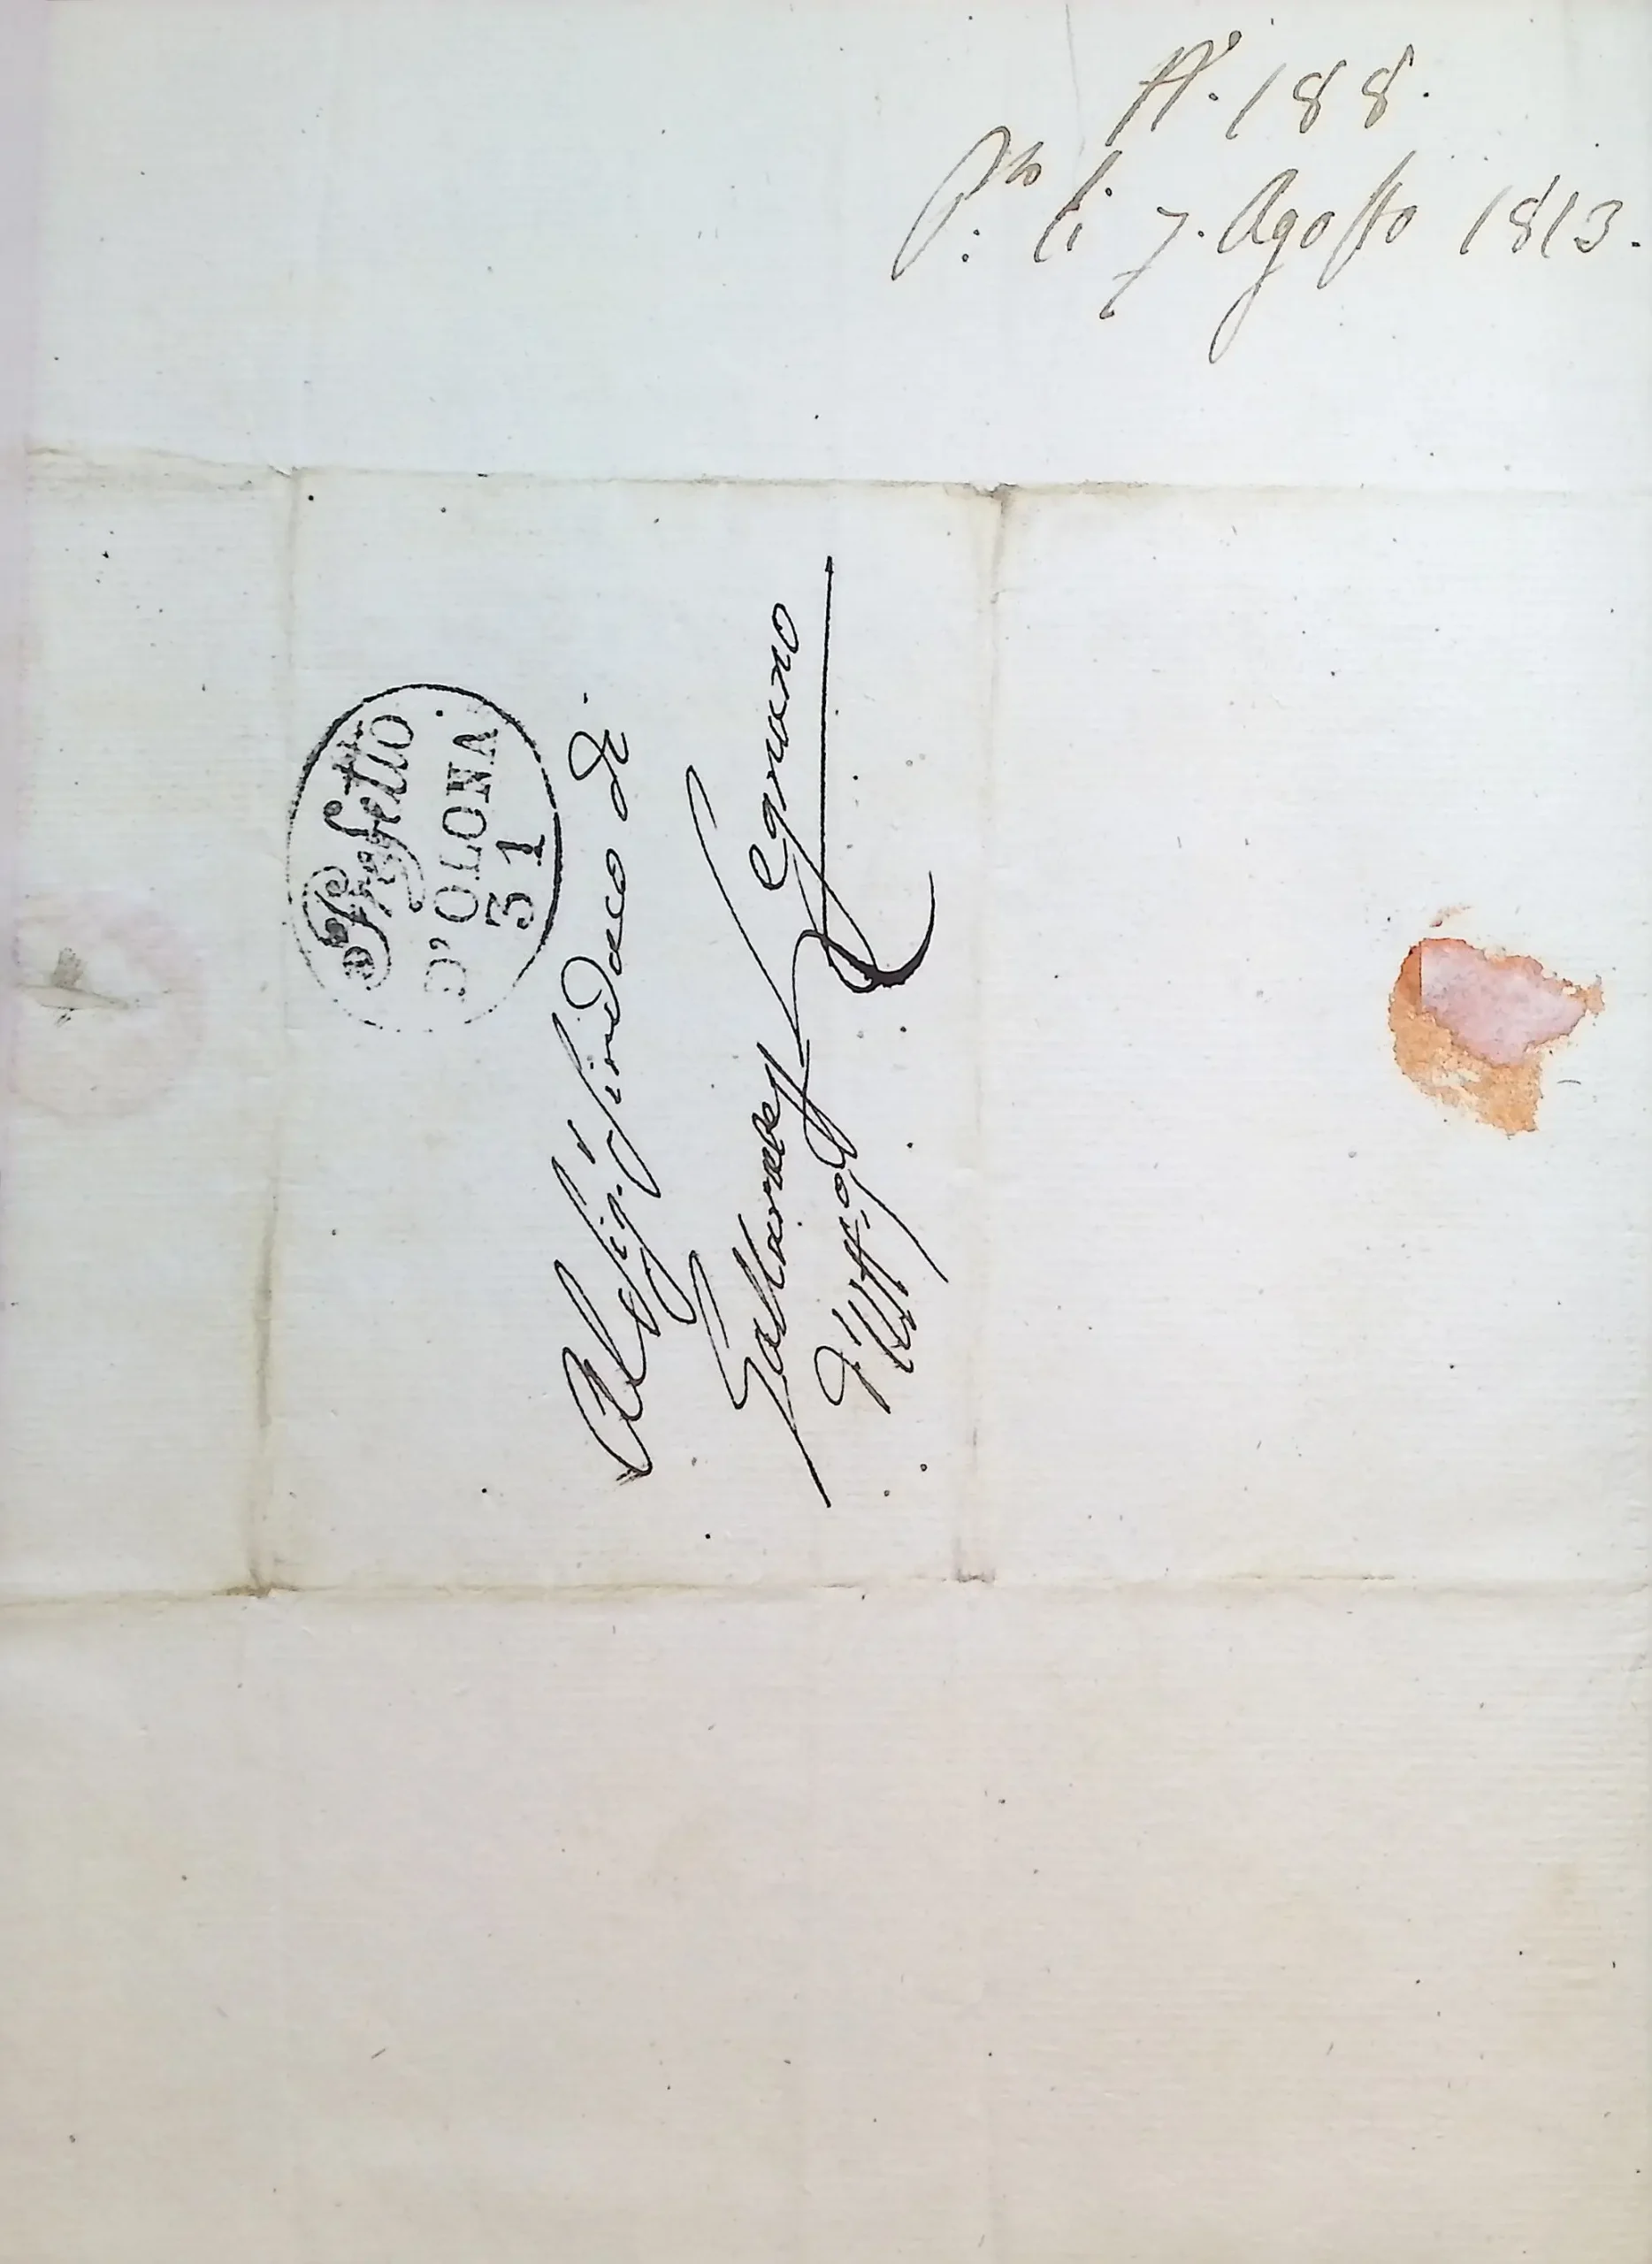 N.° 188.
P.to li 7. Agosto 1813.
Prefetto
D'OLONA
31
Al Sig.r Sindaco di
Legnano
Gallarate
d'Uff.o